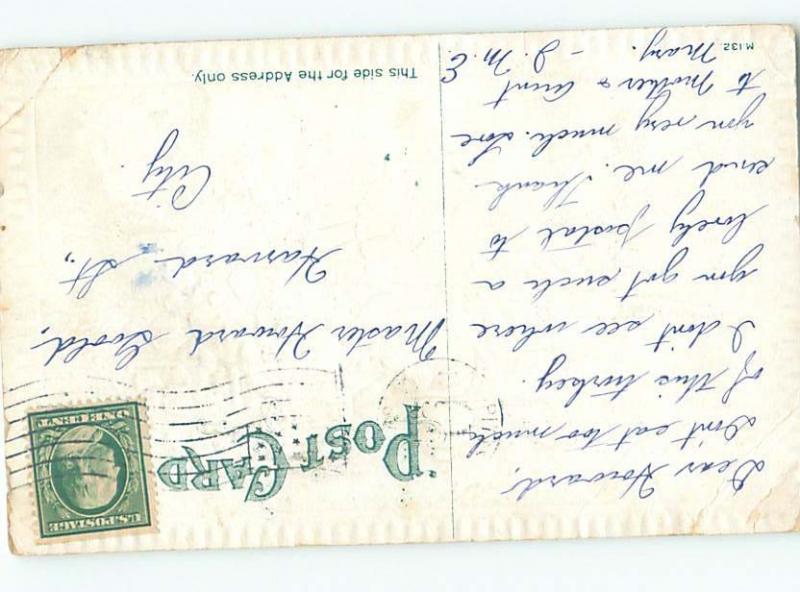 POST CARD
U.S. POSTAGE
ONE CENT
Dear Howard,
Don't eat too much
of this turkey.
I don't see where
you got such a
lovely postal to
send me. Thank
you very much. Love
to Mother & Aunt
Mary.
- J. M. E.
Master Howard Goold,
Harvard St.,
City.
This side for the Address only.
M 132